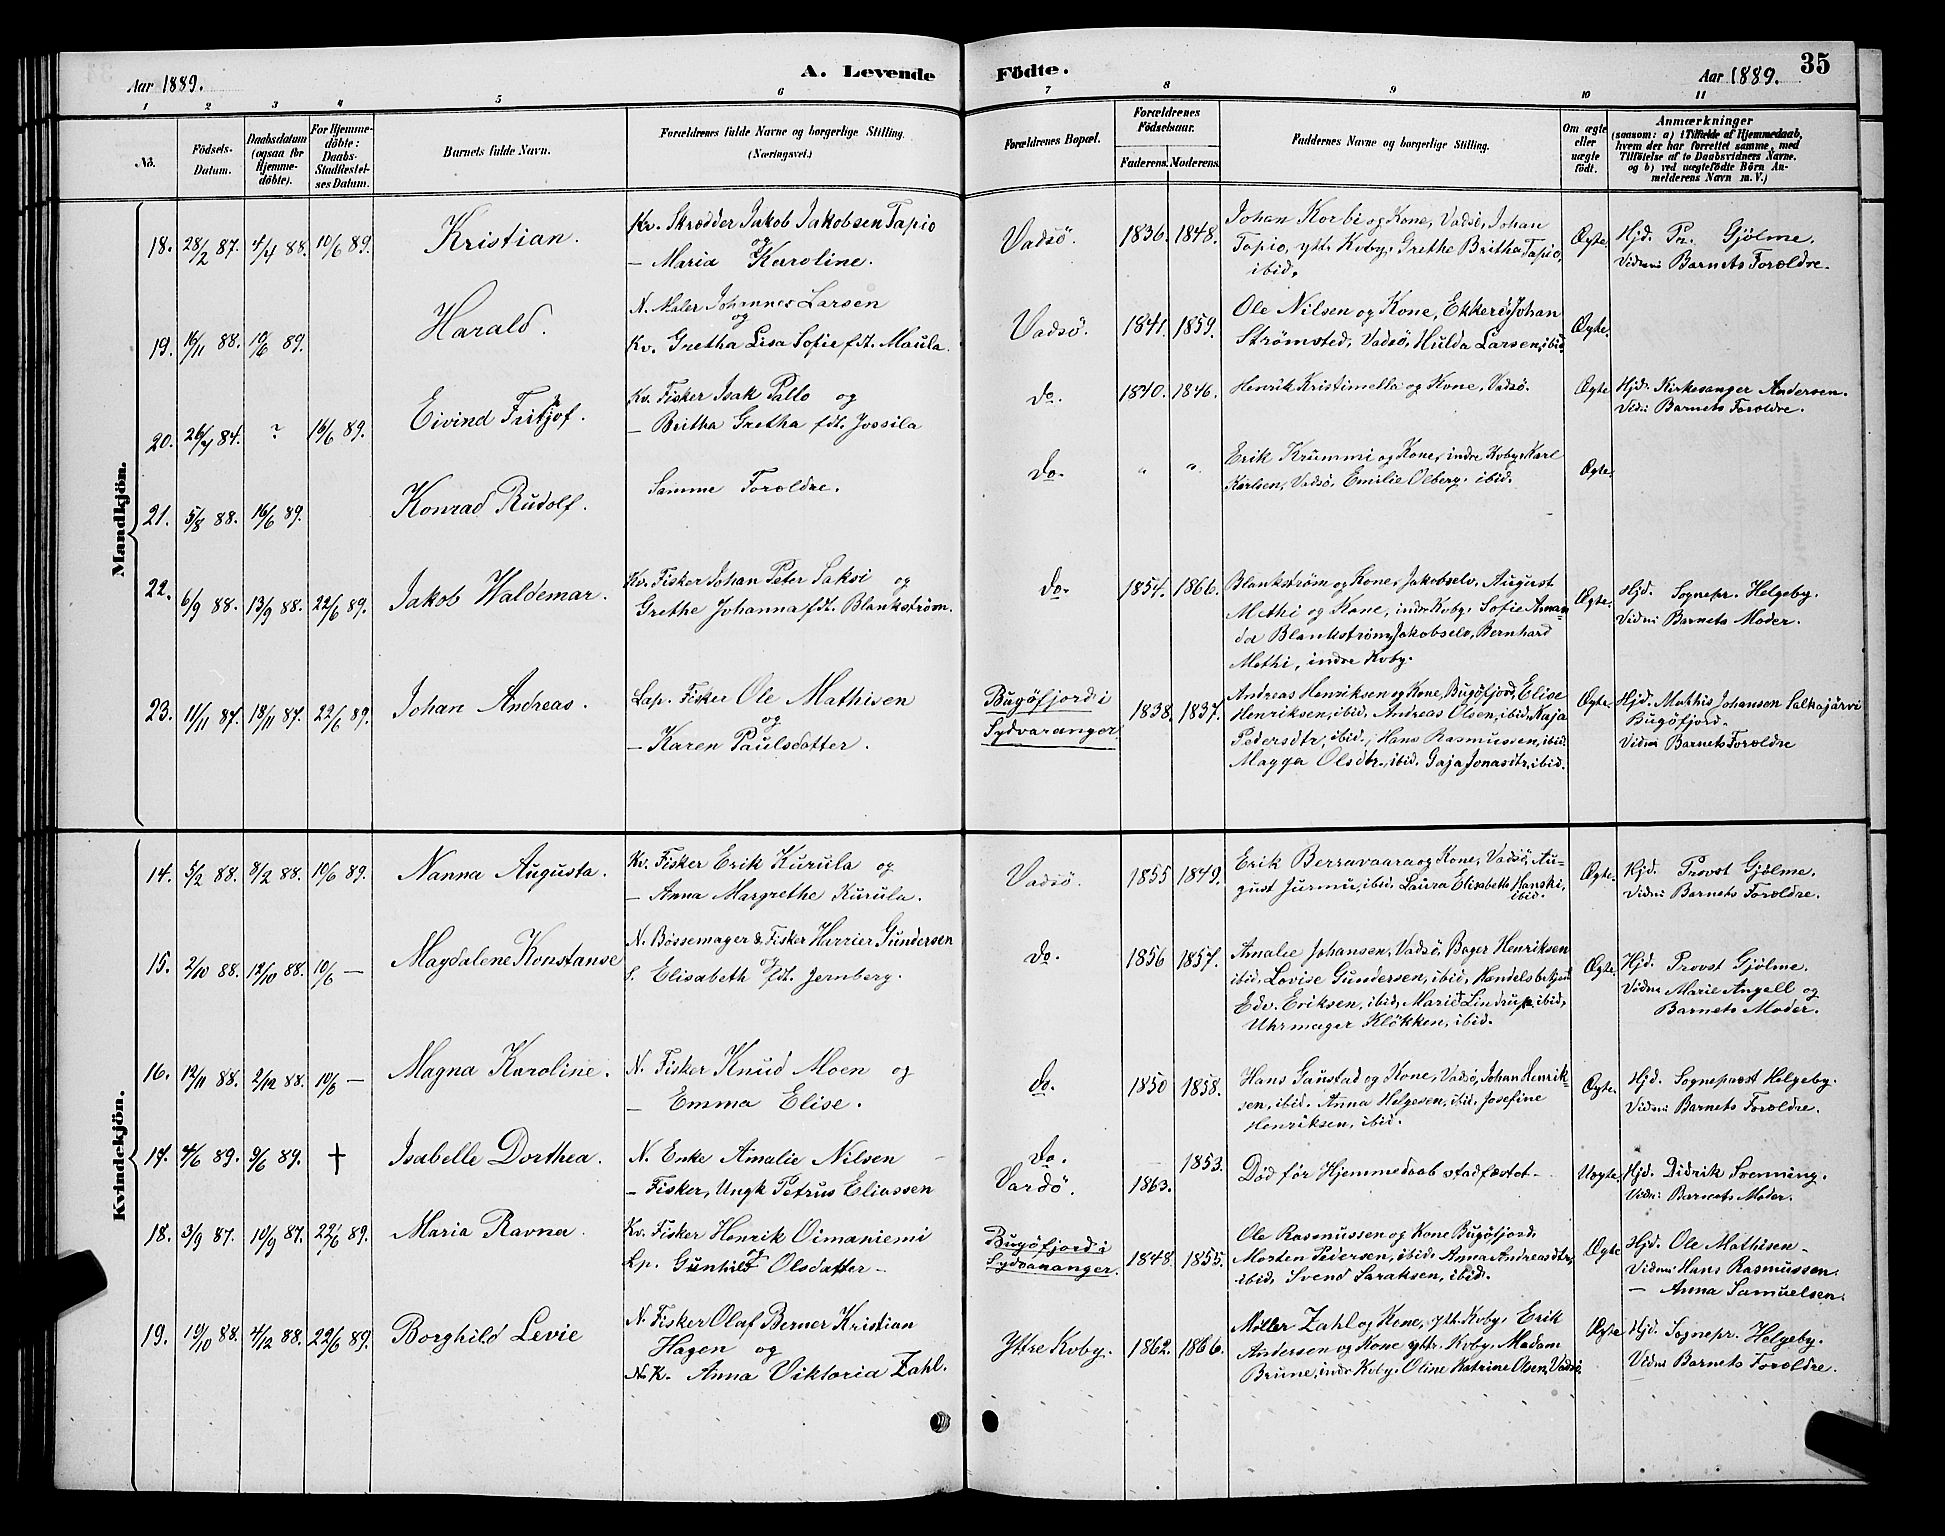 Aar 1889.
A. Levende Födte.
Aar 1889. 35
1 2 3 4 5 6 7 8 9 10 11
No.
Födsels-Datum.
Daabsdatum (ogsaa for Hjemmedöbte).
For Hjemmedöbte: Daabs-Stadfæstelses Datum.
Barnets fulde Navn.
Forældrenes fulde Navne og borgerlige Stilling.
(Næringsvei.)
Forældrenes Bopæl.
Forældrenes Födselsaar.
Faderens. Moderens.
Faddernes Navne og borgerlige Stilling.
Om ægte eller uægte födt.
Anmærkninger
(saasom: a) i Tilfælde af Hjemmedaab,
hvem der har forrettet samme, med
Tilföielse af to Daabsvidners Navne,
og b) ved uægtefödte Börn Anmelderens Navn m. V.)
Mandkjön.
18. 28/2 87. 4/4 88. 10/6 89. Kristian.
Kv. Skrædder Jakob Jakobsen Tapio
og
— Maria Karoline.
Vadsö. 1836. 1848.
Johan Korbi og Kone, Vadsö, Johan
Tapio, ytt. Kvby, Grethe Britha Tapio,
ibid.
Ægte
Hjd. Pr. Gjölme.
Vidner Barnets Forældre.
19. 16/11 88. 10/6 89. Harald.
N. Maler Johannes Larsen
og
Kv. Gretha Lisa Sofie fdt. Maula.
Vadsö. 1841. 1859.
Ole Nilsen og Kone, Ekkerö, Johan
Strömsted, Vadsö, Hulda Larsen, ibid.
Ægte
20. 26/4 84. ? 16/6 89. Eivind Fritjof.
Kv. Fisker Isak Pallo og
— Britha Gretha fdt. Jossila
do. 1840. 1846.
Henrik Kristimella og Kone, Vadsö.
Ægte
Hjd. Kirkesanger Andersen.
Vidn: Barnets Forældre.
21. 5/8 88. 16/6 89. Konrad Rudolf.
Samme Forældre.
do. " "
Erik Krummi og Kone, indre Kvby, Karl
Karlsen, Vadsö, Emilie Olberg, ibid.
Ægte
22. 6/9 88. 13/9 88. 22/6 89. Jakob Waldemar.
Kv. Fisker Johan Peter Saksi og
Grethe Johanna fdt. Blankström.
do. 1854. 1866.
Blankström og Kone, Jakobselv, August
Methi og Kone, indr. Kvby. Sofie Aman-
da Blankström, Jakobselv, Bernhard
Methi, indre Kvby.
Ægte.
Hjd. Sognepr. Helgeby.
Vidni Barnets Moder.
23. 11/11 87. 18/11 87. 22/6 89. Johan Andreas.
Lap. Fisker Ole Mathisen
og
— Karen Paulsdatter.
Bugöfjord i
Sydvaranger.
1838. 1837.
Andreas Henriksen og Kone, Bugöfjord, Elise
Henriksen, ibid. Andreas Olsen, ibid, Kaja
Pedersdtr, ibid., Hans Rasmussen, ibid.
Magga Olsdtr., ibid. Gaja Jonasdtr, ibid.
Ægte.
Hjd. Mathis Johansen Salkajärvi
Bugöfjord.
Vidni Barnets Forældre
Kvindekjön.
14. 5/2 88. 8/2 88. 10/6 89. Nanna Augusta.
Kv. Fisker Erik Kurula og
— Anna Margrethe Kurula.
Vadsö. 1855 1849.
Erik Berravaara og Kone, Vadsö, Au-
gust Jurmu, ibid. Laura Elisabeth Hanski,
ibid.
Ægte.
Hjd. Provst Gjölme.
Vidni Barnets Forældre.
15. 2/10 88. 12/10 88. 10/6 — Magdalene Konstanse
N. Bössemager & Fisker Gundersen
og
S. Elisabeth fdt. Jernberg.
do. 1856 1857.
Amalie Johansen, Vadsö, Bager Henriksen
ibid, Lovise Gundersen, ibid, Handelsbetjent
Edv. Eriksen, ibid, Marie Lindrup, ibid,
Uhrmager Klökken, ibid.
Ægte.
Hjd. Provst Gjölme.
Vidni Marie Angell og
Barnets Moder.
16. 12/11 88. 2/12 88. 10/6 — Magna Karoline.
N. Fisker Knud Moen og
— Emma Elise.
do. 1850 1858.
Hans Ganstad og Kone, Vadsö, Johan Henrik-
sen, ibid. Anna Helgesen, ibid. Josefine
Henriksen, ibid.
Ægte.
Hjd. Sogneprest Helgeby.
Vidni Barnets Forældre.
17. 4/6 89. 9/6 89. † Isabelle Dorthea.
N. Enke Amalie Nilsen —
— Fisker, Ungk Petrus Eliassen
do.
Vardö. 1863. 1853.
Död för Hjemmedaab stadfæstet —
Uægte.
Hjd. Didrik Svenning.
Vidni Barnets Moder.
18. 3/9 87. 10/9 87. 22/6 89. Maria Ravna.
Kv. Fisker Henrik Oimaniemi
og
Lp. Gunhild Olsdatter —
Bugöfjord i
Sydvaranger. 1848. 1855.
Ole Rasmussen og Kone Bugöfjord,
Morten Pedersen, ibid. Anna Andreasdtr,
ibid, Svend Saraksen, ibid.
Ægte
Hjd. Ole Mathisen —
Vidni Hans Rasmussen.
— Anna Samuelsen.
19. 19/10 88. 4/12 88. 22/6 89. Borghild Levie
N. Fisker Olaf Berner Kristian
Hagen og
N.K. Anna Viktoria Zahl.
Yttre Kvby. 1862. 1866.
Möller Zahl og Kone, ytt. Kvby, Erik
Andersen og Kone yttr. Kvby, Madam
Brune, indr. Kvby, Oline Katrine Olsen, Vadsö.
Ægte
Hjd. Sognepr. Helgeby.
Vidni Barnets Forældre.